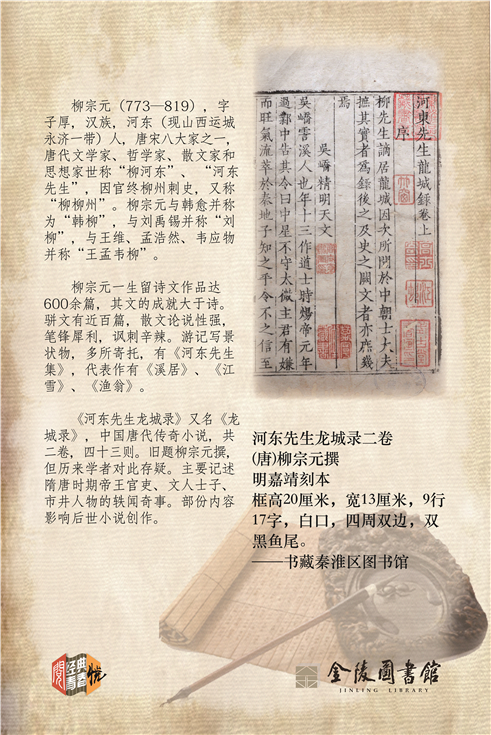 柳宗元（773—819），字
子厚，汉族，河东（现山西运城
永济一带）人，唐宋八大家之一，
唐代文学家、哲学家、散文家和
思想家世称“柳河东”、“河东
先生”，因官终柳州刺史，又称
“柳柳州”。柳宗元与韩愈并称
为“韩柳”，与刘禹锡并称“刘
柳”，与王维、孟浩然、韦应物
并称“王孟韦柳”。
柳宗元一生留诗文作品达
600余篇，其文的成就大于诗。
骈文有近百篇，散文论说性强，
笔锋犀利，讽刺辛辣。游记写景
状物，多所寄托，有《河东先生
集》，代表作有《溪居》、《江
雪》、《渔翁》。
《河东先生龙城录》又名《龙
城录》，中国唐代传奇小说，共
二卷，四十三则。旧题柳宗元撰，
但历来学者对此存疑。主要记述
隋唐时期帝王官吏、文人士子、
市井人物的轶闻奇事。部份内容
影响后世小说创作。
河東先生龍城錄卷上
序
柳先生謫居龍城因次所聞於中朝士大夫
摭其實者爲錄後之及史之闕文者亦庶幾
焉
吳嶠精明天文
吳嶠霅溪人也年十三作道士時煬帝元年
過鄴中告其令曰中星不守太微主君有嫌
而旺氣流萃於秦地子知之乎令不之信至
河东先生龙城录二卷
(唐)柳宗元撰
明嘉靖刻本
框高20厘米，宽13厘米，9行
17字，白口，四周双边，双
黑鱼尾。
——书藏秦淮区图书馆
金陵圖書館
JINLING LIBRARY